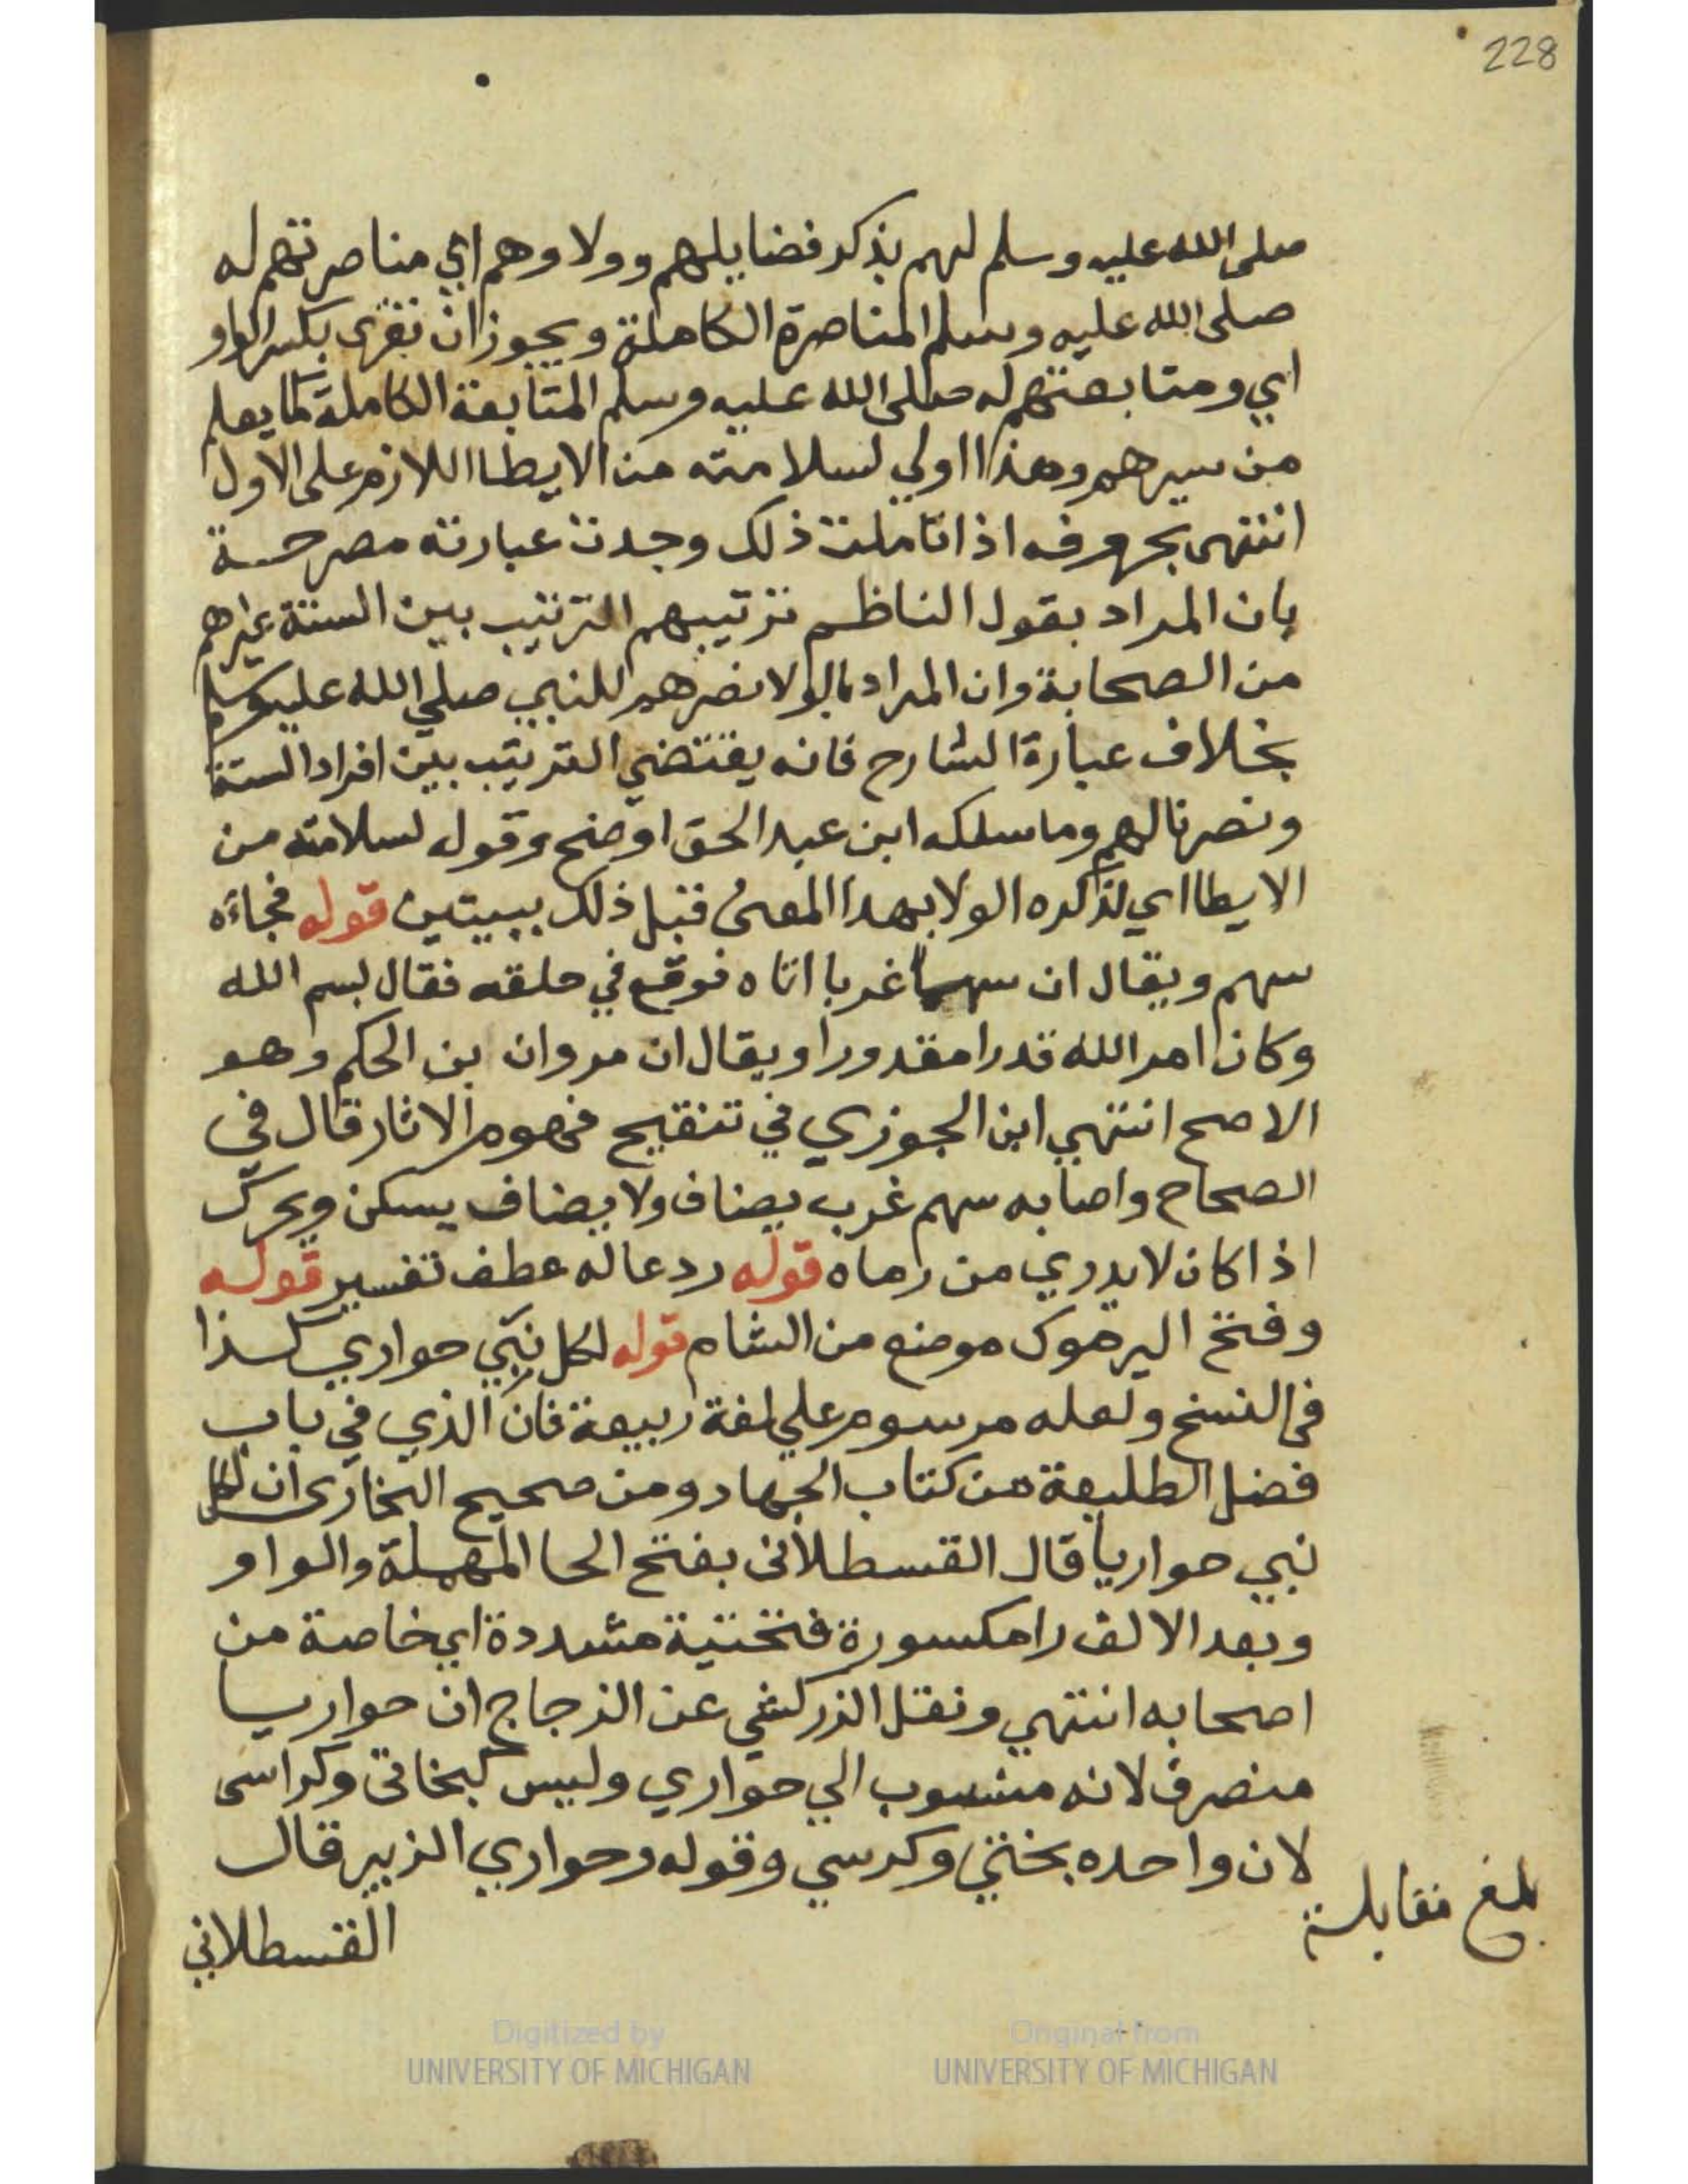 228
صلى الله عليه وسلم لهم بذكر فضايلهم وولاوهم اي مناصرتهم له
صلى الله عليه وسلم المناصرة الكاملة ويجوز ان تقرى بكسر الواو
اي ومتابعتهم له صلى الله عليه وسلم المتابعة الكاملة كما يعلم
من سيرهم وهذا اولي لسلامته من الايطا اللازم على الاول
انتهى بحروفه اذا تاملت ذلك وجدت عبارته مصرحة
بان المراد بقول الناظم ترتيبهم الترتيب بين الستة غيرهم
من الصحابة وان المراد بالولا نصرهم للنبي صلي الله عليه وسلم
بخلاف عبارة الشارح فانه يقتضي الترتيب بين افراد الستة
ونصرنا لهم وما سلكه ابن عبد الحق اوضح وقوله لسلامته من
الايطا اي لذكره الولا بهدا المعنى قبل ذلك ببيتين قوله فجاءه
سهم ويقال ان سهما غربا اتاه فوقع في حلقه فقال بسم الله
وكان امر الله قدرا مقدورا ويقال ان مروان بن الحكم وهو
الاصح انتهي ابن الجوزي في تنقيح فهوم الاثار قال في
الصحاح واصابه سهم غرب يضاف ولا يضاف يسكن ويحرك
اذا كان لا يدري من رماه قوله ردعا له عطف تفسير قوله
وفتح اليرموك موضع من الشام قوله لكل نبي حواري كذا
في النسخ ولعله مرسوم علي لغة ربيعة فان الذي في باب
فضل الطليعة من كتاب الجهاد ومن صحيح البخارى ان لكل
نبي حواريا قال القسطلانى بفتح الحا المهملة والواو
وبعد الالف را مكسورة فتحتية مشددة اي خاصة من
اصحابه انتهي ونقل الزركشي عن الزجاج ان حواريا
منصرف لانه منسوب الي حواري وليس كبخاتى وكراسى
لان واحده بختي وكرسي وقوله وحواري الزبير قال
بلغ مقابلة
القسطلاني
Digitized by
UNIVERSITY OF MICHIGAN
Original from
UNIVERSITY OF MICHIGAN